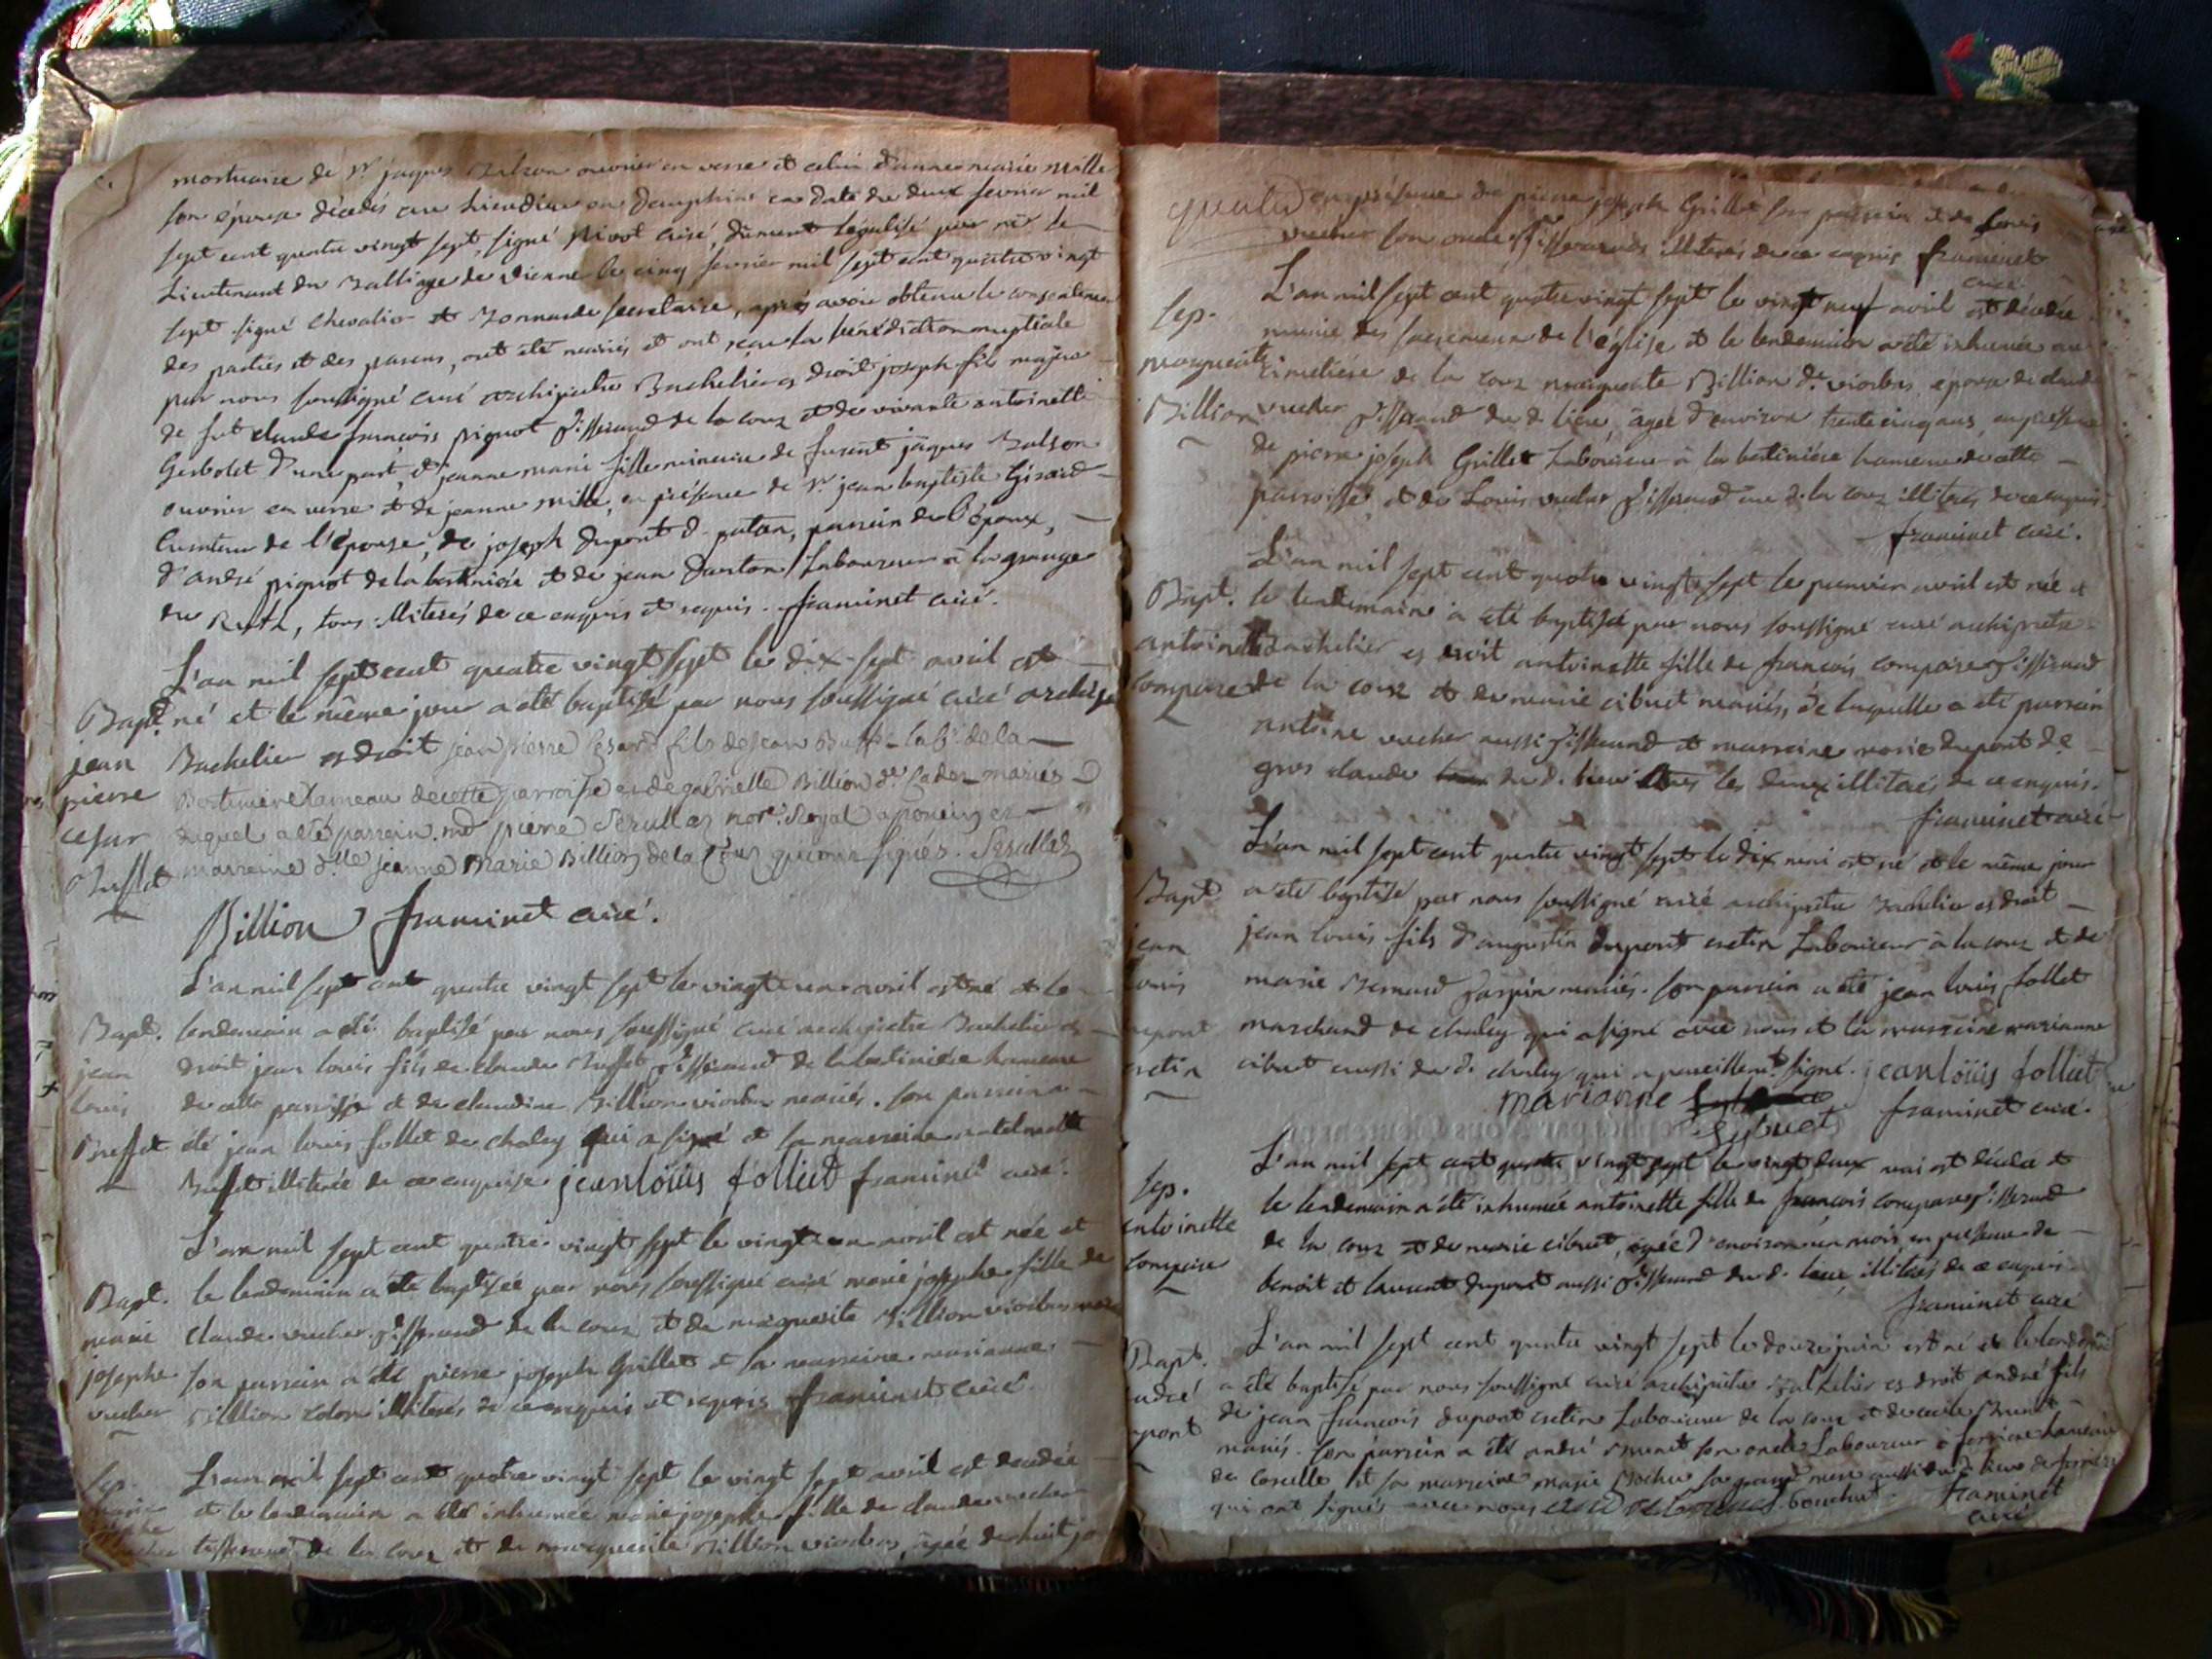 mortuaire de Sr jaques Balson ouvrier en verre et celui d'anne marie mille
son épouse décédés en dauphiné en date du deux fevrier mil
sept cent quatre vingt sept, signé pivot curé, dûment légalisé par mr le
Lieutenant du Balliage de vienne le cinq fevrier mil sept cent quatre vingt
sept signé chevalier et secretaire, après avoir obtenu le consentement
des parties et des parens, ont été mariés et ont reçu la bénédiction nuptiale
par nous soussigné curé archiprêtre Bachelier es droit joseph fils majeur
de fut claude françois pignot tisserand de la cour et de vivante antoinette
Gerbolet d'une part, et jeanne marie fille mineure de furent jaques Balson
ouvrier en verre et de jeanne mille, en présence de Sr jean baptiste Girard
curateur de l'épouse, de joseph dupont d. patan, parrain de l'époux,
d'andré pignot de la bertinière et de jean Laboureur à la grange
du tous illiterés de ce enquis et requis. framinet curé.
L'an mil sept cent quatre vingt sept le dix sept avril est
Bapt. né et le même jour a été baptisé par nous soussigné curé archip
jean Bachelier es droit jean pierre Cesar fils de jean Buffet lab. de la
pierre Bertiniere hameau de cette parroisse et de gabrielle Billion mariés
cesar duquel a été parrain md pierre Serullaz nore. Royal a poncin et
Buffet marreine dlle jeanne Marie Billion de la Cour qui ont signés. Serullaz
Billion framinet curé.
L'an mil sept cent quatre vingt sept le vingt un avril est né et le
Bapt. lendemain a été baptisé par nous soussigné curé archiprêtre Bachelier es
jean droit jean louis fils de claude Buffet tisserand de la bertinière hameau
louis de cette parroisse et de claudine Billion viorbas mariés. son parrain a
Buffet été jean louis follet de chaley qui a signé et la marreine
Buffet illiterée de ce enquise jean loüis folliet framinet curé.
L'an mil sept cent quatre vingt sept le vingt un avril est née et
Bapt. le lendemain a été baptisée par nous soussigné curé marie josephe fille de
marie claude vucher tisserand de la cour et de marguerite Billion viorbas
josephe son parrain a été pierre joseph Grillet et sa marreine marianne
vucher Billion illiterés de ce enquis et requis framinet curé.
Sep. L'an mil sept cent quatre vingt sept le vingt sept avril est decedée
marie et le lendemain a été inhumée marie josephe fille de claude vucher
tisserand de la cour et de marguerite Billion viorbas, agée de huit
en présence de pierre joseph Grillet son parrain et de louis
vucher son oncle tisserands illiterés de ce enquis framinet
curé
L'an mil sept cent quatre vingt sept le vingt neuf avril est decedée
Sep. munie des sacremens de l'église et le lendemain a été inhumée au
marguerite cimetière de la cour marguerite Billion dte viorbas epouse de claude
Billion vucher tisserand du d. lieu, agée d'environ trente cinq ans, en présence
de pierre joseph Grillet Laboureur à la bertinière hameau de cette
parroisse, et de Louis vucher tisserand au d. la cour illiterés de ce enquis.
framinet curé.
L'an mil sept cent quatre vingt sept le premier avril est née et
Bapt. le lendemain a été baptisée par nous soussigné curé archiprêtre
antoinette bachelier es droit antoinette fille de françois compare tisserand
compare de la cour et de marie cibuet mariés, de laquelle a été parrain
antoine vucher aussi tisserand et marreine marie dupont de
gros claude du d. lieu les deux illiterés de ce enquis.
framinet curé
L'an mil sept cent quatre vingt sept le dix mai est né et le même jour
Bapt a été baptisé par nous soussigné curé archiprêtre Bachelier es droit
jean jean louis fils d'augustin dupont cretin Laboureur à la cour et de
louis marie Bernard mariés. son parrain a été jean louis follet
dupont marchand de chaley qui a signé avec nous et la marreine marianne
cretin cibuet aussi du d. chaley qui a pareillemt. signé. jean loüis folliet
marianne
sybuet framinet curé.
L'an mil sept cent quatre vingt sept le vingt deux mai est décédée et
Sep. le lendemain a été inhumée antoinette fille de françois compare tisserand
antoinette de la cour et de marie cibuet, agée d'environ un mois, en présence de
compare benoit et laurent dupont aussi tisserand du d. lieu illiterés de ce enquis.
framinet curé
L'an mil sept cent quatre vingt sept le douze juin est né et le lendemain
Bapt. a été baptisé par nous soussigné curé archiprêtre Bachelier es droit andré fils
andré de jean françois dupont cretin Laboureur de la cour et de Brunet
dupont mariés. son parrain a été andré Brunet son oncle Laboureur à hameau
de corcelle et sa marreine marie Bochu sa grand mere aussi du d. lieu de
qui ont signés avec nous bouchu. framinet
curé